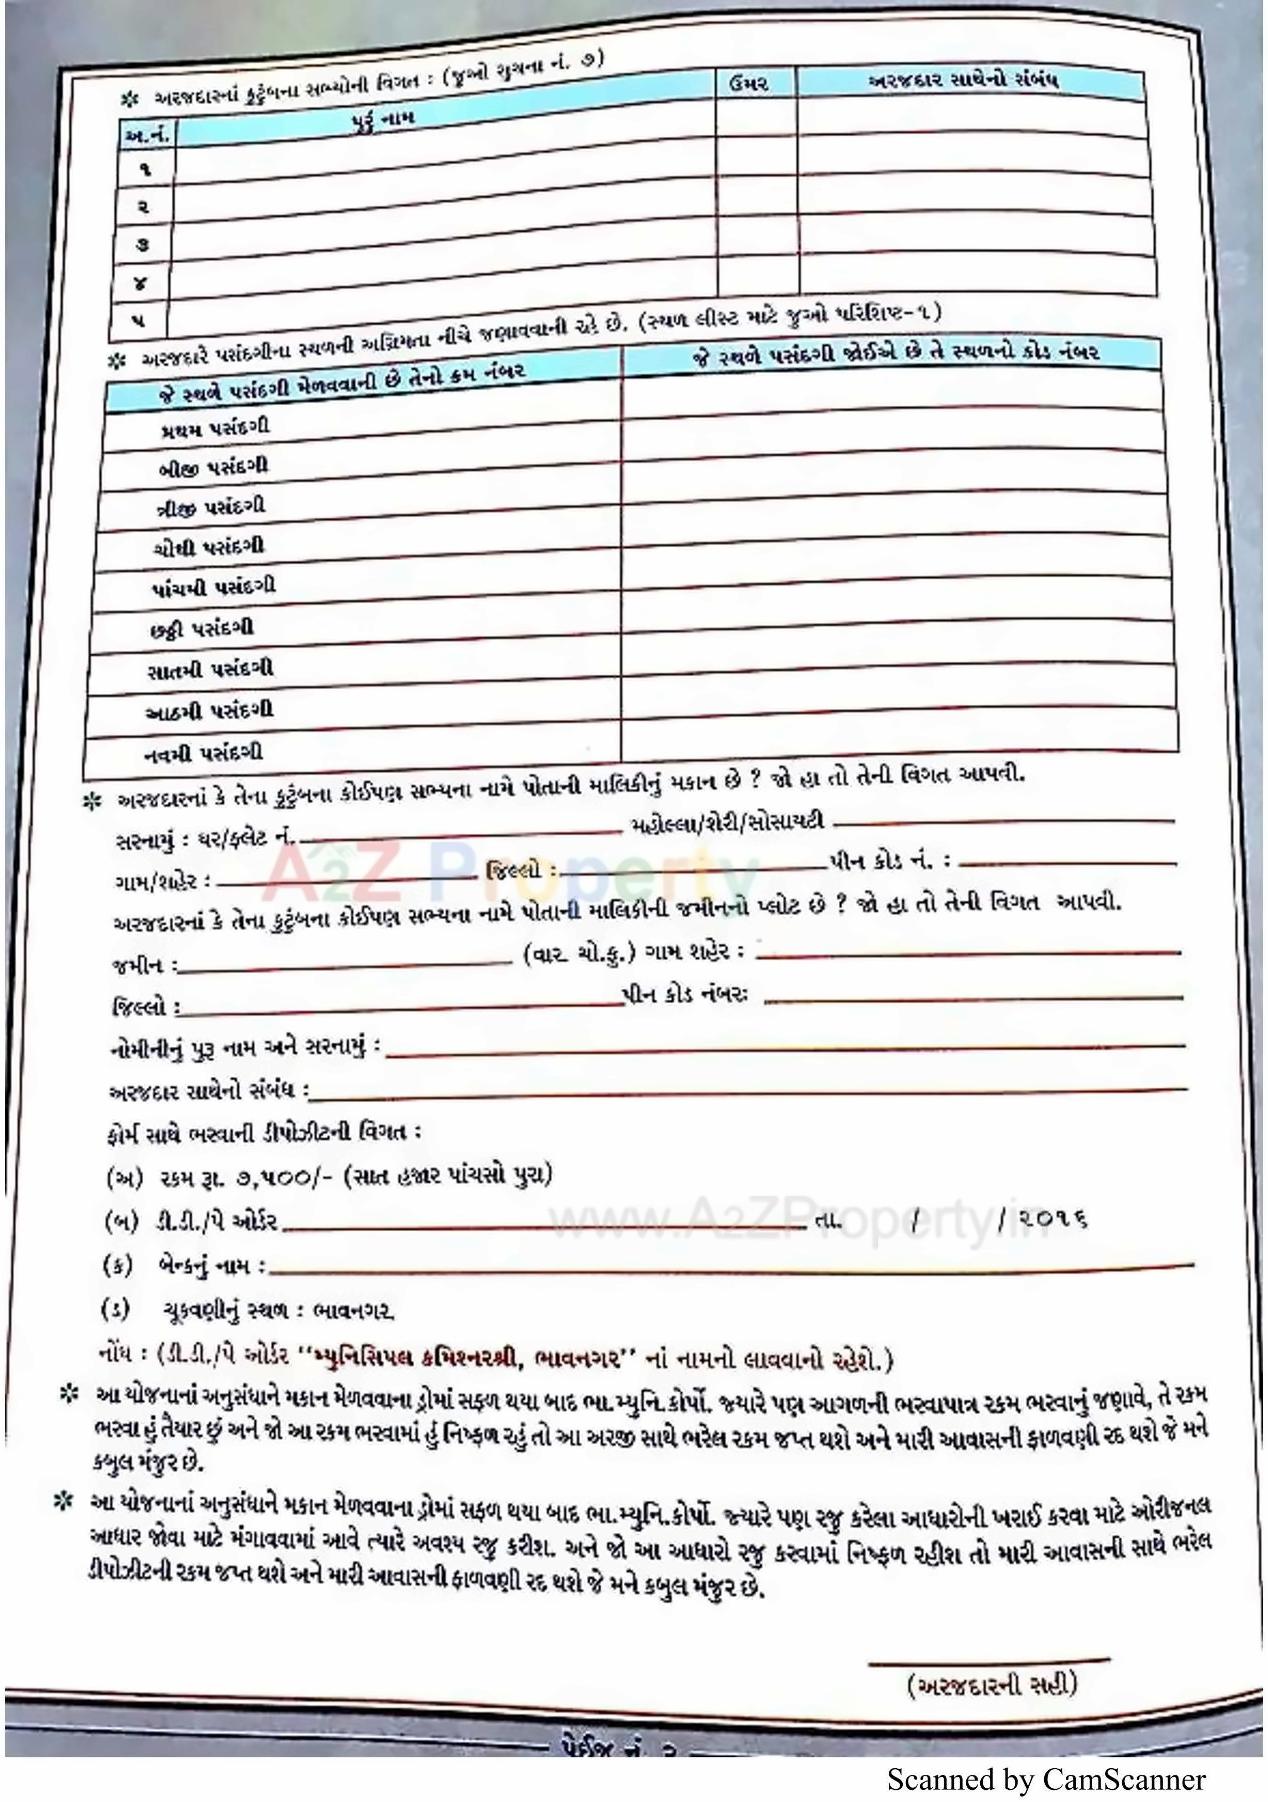 ✻ અરજદારનાં કુટુંબના સભ્યોની વિગત : (જુઓ સુચના નં. ૭)
અ.નં. પુરૂં નામ ઉંમર અરજદાર સાથેનો સંબંધ
૧
૨
૩
૪
૫
✻ અરજદારે પસંદગીના સ્થળની અગ્રિમતા નીચે જણાવવાની રહે છે. (સ્થળ લીસ્ટ માટે જુઓ પરિશિષ્ટ-૧)
જે સ્થળે પસંદગી મેળવવાની છે તેનો ક્રમ નંબર જે સ્થળે પસંદગી જોઈએ છે તે સ્થળનો કોડ નંબર
પ્રથમ પસંદગી
બીજી પસંદગી
ત્રીજી પસંદગી
ચોથી પસંદગી
પાંચમી પસંદગી
છઠ્ઠી પસંદગી
સાતમી પસંદગી
આઠમી પસંદગી
નવમી પસંદગી
✻ અરજદારનાં કે તેના કુટુંબના કોઈપણ સભ્યના નામે પોતાની માલિકીનું મકાન છે ? જો હા તો તેની વિગત આપવી.
સરનામું : ઘર/ફ્લેટ નં. મહોલ્લા/શેરી/સોસાયટી
A2Z Property
ગામ/શહેર : જિલ્લો : પીન કોડ નં. :
અરજદારનાં કે તેના કુટુંબના કોઈપણ સભ્યના નામે પોતાની માલિકીની જમીનનો પ્લોટ છે ? જો હા તો તેની વિગત આપવી.
જમીન : (વાર ચો.ફુ.) ગામ શહેર :
જિલ્લો : પીન કોડ નંબરઃ
નોમીનીનું પુરૂ નામ અને સરનામું :
અરજદાર સાથેનો સંબંધ :
ફોર્મ સાથે ભરવાની ડીપોઝીટની વિગત :
(અ) રકમ રૂા. ૭,૫૦૦/- (સાત હજાર પાંચસો પુરા)
(બ) ડી.ડી./પે ઓર્ડર તા. / / ૨૦૧૬
www.A2ZProperty.in
(ક) બેન્કનું નામ :
(ડ) ચૂકવણીનું સ્થળ : ભાવનગર
નોંધ : (ડી.ડી./પે ઓર્ડર "મ્યુનિસિપલ કમિશ્નરશ્રી, ભાવનગર" નાં નામનો લાવવાનો રહેશે.)
✻ આ યોજનાનાં અનુસંધાને મકાન મેળવવાના ડ્રોમાં સફળ થયા બાદ ભા.મ્યુનિ.કોર્પો. જ્યારે પણ આગળની ભરવાપાત્ર રકમ ભરવાનું જણાવે, તે રકમ
ભરવા હું તૈયાર છું અને જો આ રકમ ભરવામાં હું નિષ્ફળ રહું તો આ અરજી સાથે ભરેલ રકમ જપ્ત થશે અને મારી આવાસની ફાળવણી રદ થશે જે મને
કબુલ મંજુર છે.
✻ આ યોજનાનાં અનુસંધાને મકાન મેળવવાના ડ્રોમાં સફળ થયા બાદ ભા.મ્યુનિ.કોર્પો. જ્યારે પણ રજુ કરેલા આધારોની ખરાઈ કરવા માટે ઓરીજનલ
આધાર જોવા માટે મંગાવવામાં આવે ત્યારે અવશ્ય રજુ કરીશ. અને જો આ આધારો રજુ કરવામાં નિષ્ફળ રહીશ તો મારી આવાસની સાથે ભરેલ
ડીપોઝીટની રકમ જપ્ત થશે અને મારી આવાસની ફાળવણી રદ થશે જે મને કબુલ મંજુર છે.
(અરજદારની સહી)
પેઈજ નં. ૨
Scanned by CamScanner